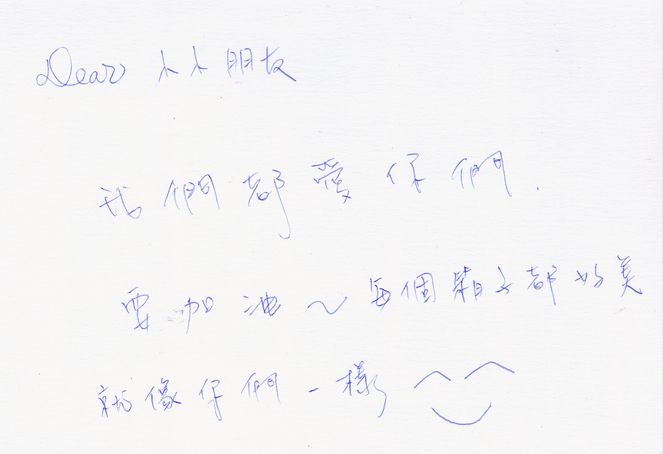 Dear 小小朋友
我們都愛你們.
要加油～每個箱子都好美
就像你們一樣